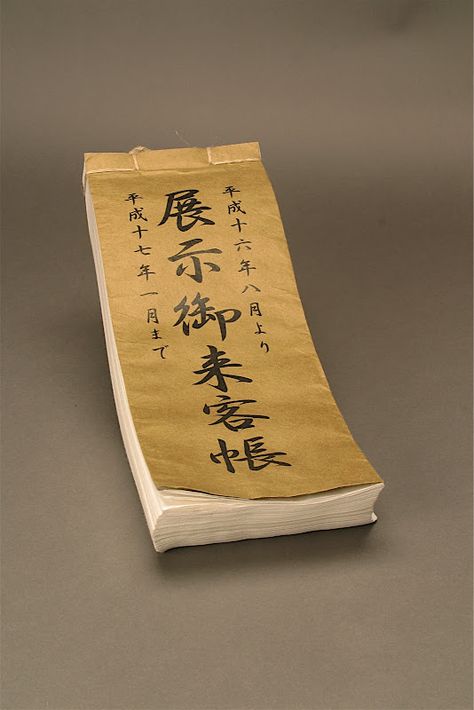 平成十六年八月より
展示御来客帳
平成十七年一月まで